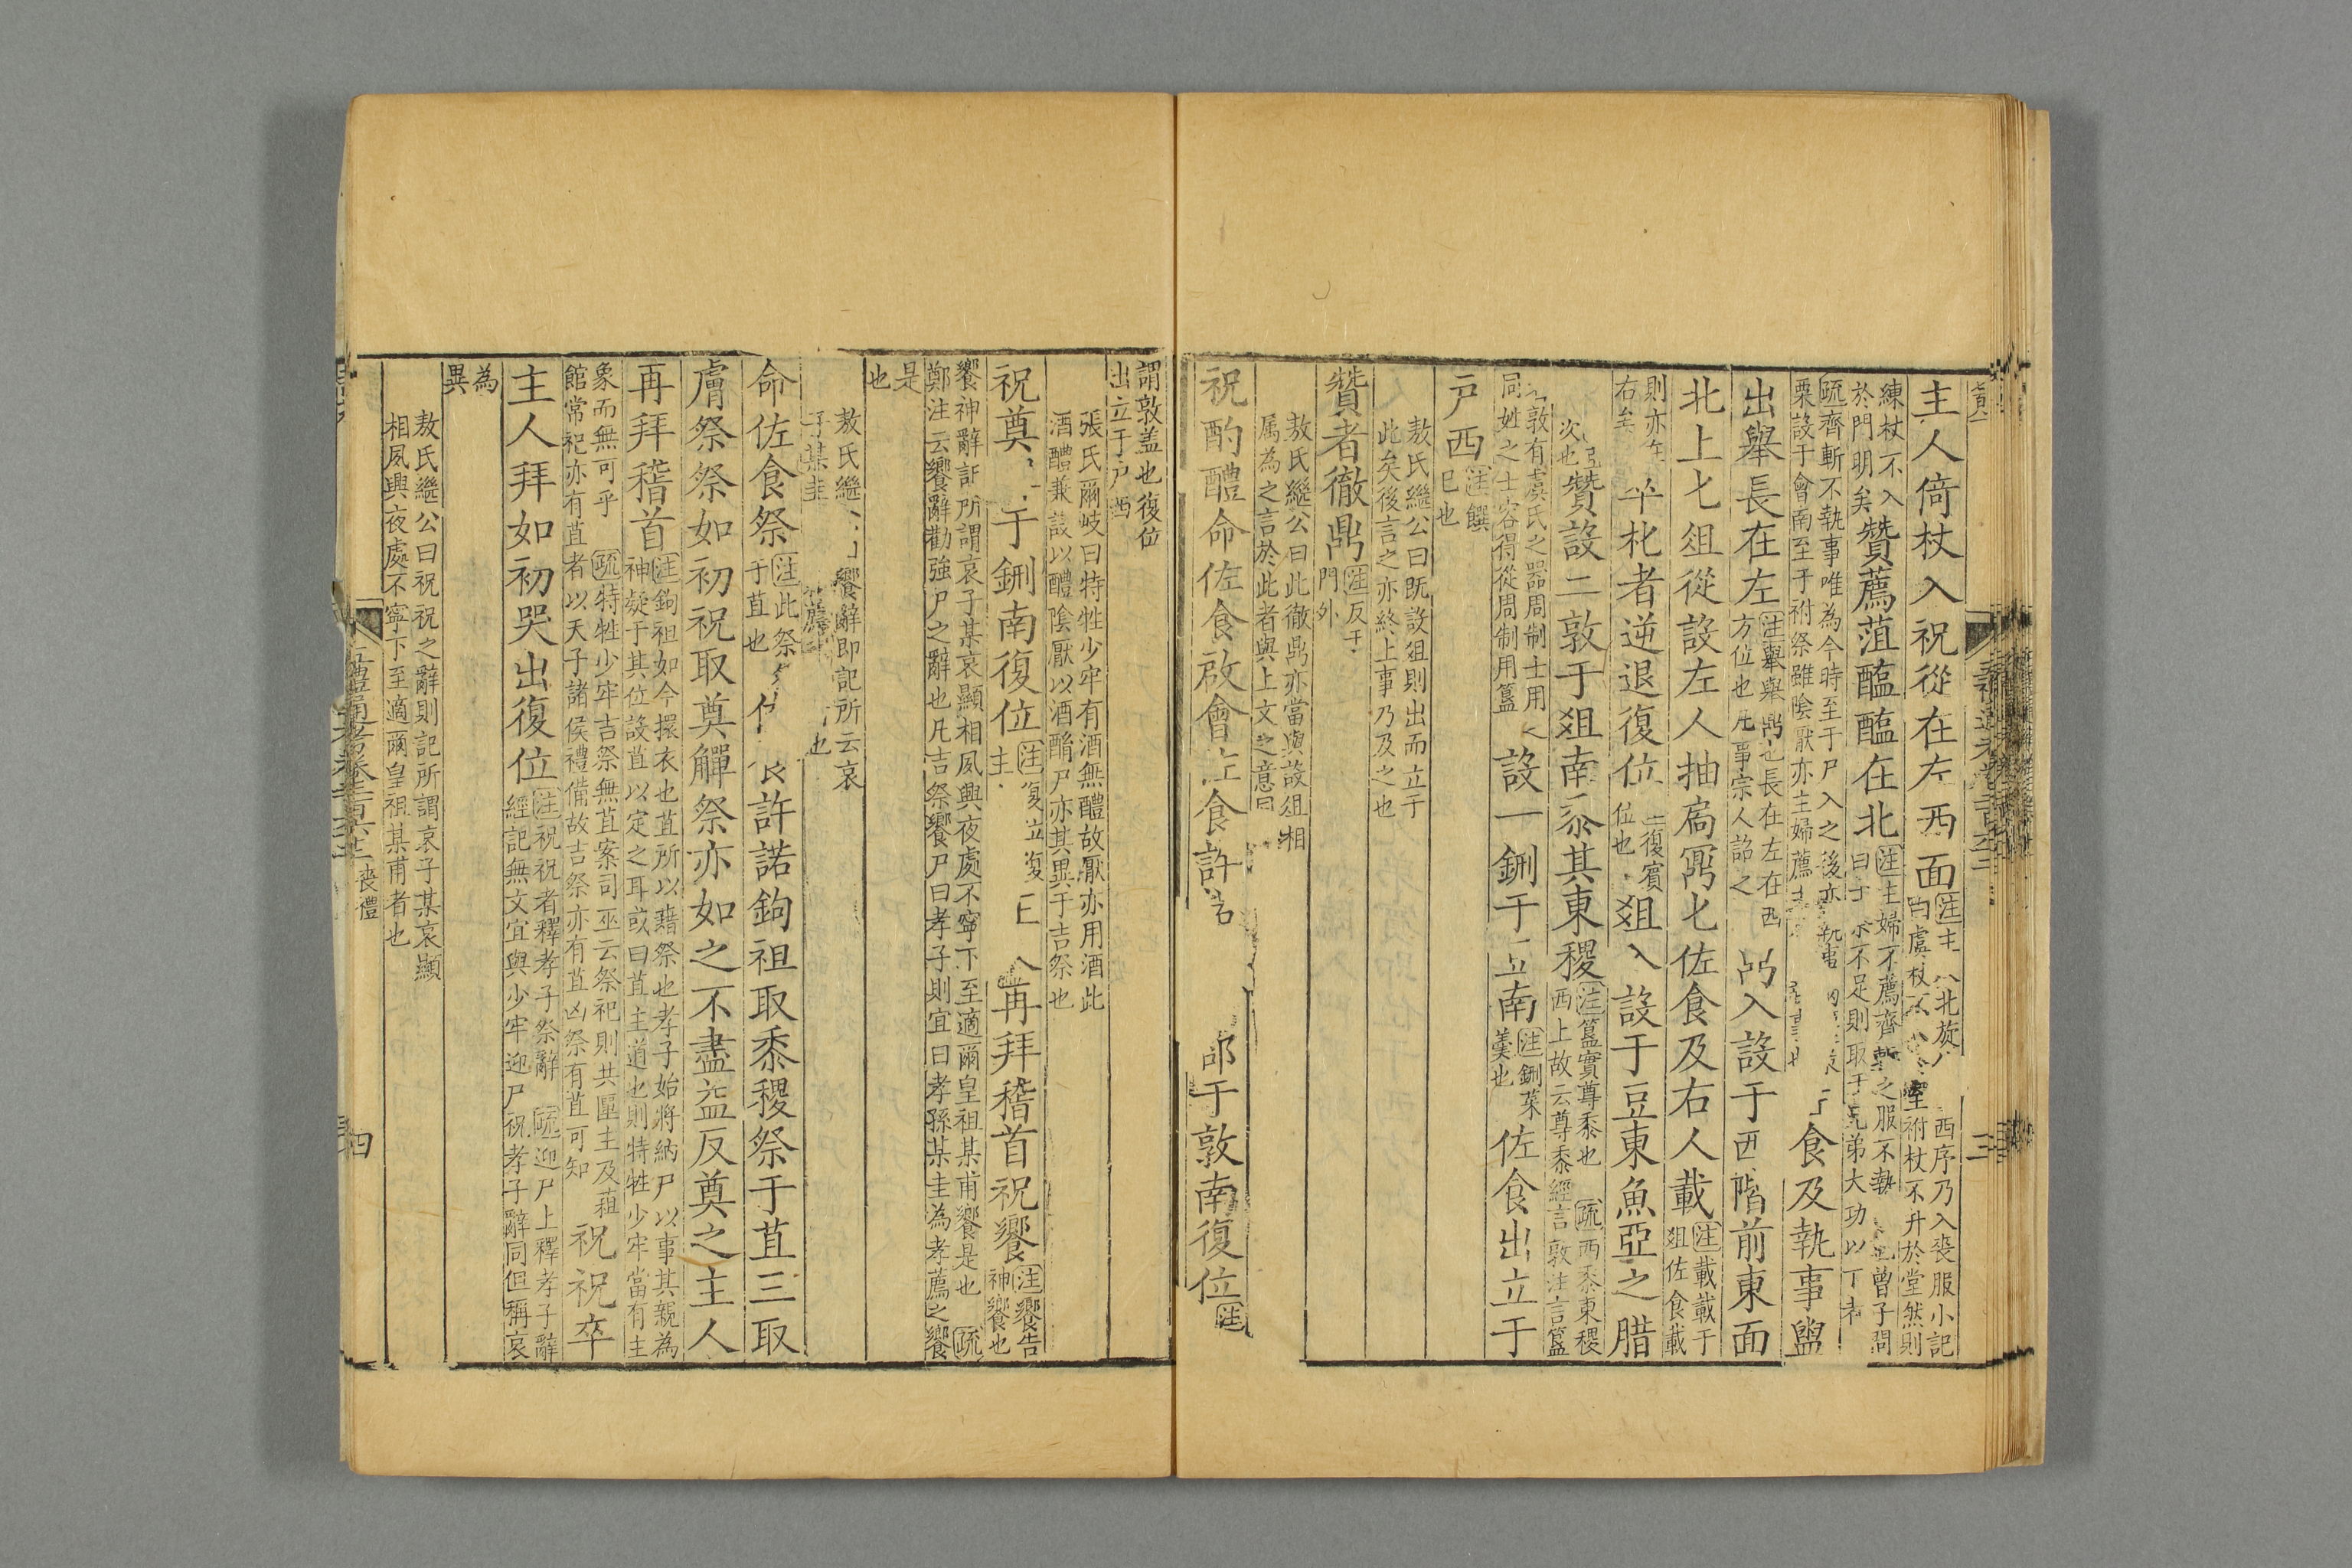 主人倚杖入祝從在左西面注主 北旋 西序乃入喪服小記
曰虞杖不 室祔杖不升於堂然則
練杖不入
於門明矣贊薦菹醢醢在北注主婦不薦齊斬之服不執 也曾子問
曰士 不足則取于兄弟大功以下者
疏齊斬不執事唯為今時至于尸入之後亦執事
栗設于會南至于祔祭雖陰厭亦主婦薦 食及執事盥
出舉長在左注舉舉鼎也長在左在西
方位也凡事宗人詔之 入設于西階前東面
北上匕俎從設左人抽扃鼏匕佐食及右人載注載載于
俎佐食載
則亦在
右矣 杝者逆退復位 復賓
位也俎入設于豆東魚亞之腊
次也贊設二敦于俎南黍其東稷注簋實尊黍也 疏西黍東稷
西上故云尊黍經言敦注言簋
敦有虞氏之器周制士用
同姓之士容得從周制用簋 設一鉶于豆南注鉶菜
羹也佐食出立于
戶西注饌
已也
敖氏繼公曰既設俎則出而立于
此矣後言之亦終上事乃及之也
贊者徹鼎注反于
門外
敖氏繼公曰此徹鼎亦當與設俎相
属為之言於此者與上文之意同
祝酌醴命佐食啟會佐食許諾 卻于敦南復位注
謂敦盖也復位
出立于戶西
張氏爾岐曰特牲少牢有酒無醴故厭亦用酒此
酒醴兼設以醴陰厭以酒酳尸亦其異于吉祭也
祝奠 于鉶南復位注復位復
主 再拜稽首祝饗注饗告
神饗也
饗神辭記所謂哀子某哀顯相夙興夜處不寧下至適爾皇祖某甫饗是也 疏
鄭注云饗辭勸強尸之辭也凡吉祭饗尸曰孝子則宜曰孝孫某圭為孝薦之饗
是
也
敖氏繼 饗辭即記所云哀
子某圭 薦 也
命佐食祭注此祭
于苴也 許諾鉤祖取黍稷祭于苴三取
膚祭祭如初祝取奠觶祭亦如之不盡益反奠之主人
再拜稽首注鉤祖如今擐衣也苴所以藉祭也孝子始將納尸以事其親為
神疑于其位設苴以定之耳或曰苴主道也則特牲少牢當有主
象而無可乎 疏特牲少牢吉祭無苴案司巫云祭祀則共匰主及蒩
館常祀亦有苴者以天子諸侯禮備故吉祭亦有苴凶祭有苴可知 祝祝卒
主人拜如初哭出復位注祝祝者釋孝子祭辭 疏迎尸上釋孝子辭
經記無文宜與少牢迎尸祝孝子辭同但稱哀
為
異
敖氏繼公曰祝祝之辭則記所謂哀子某哀顯
相夙興夜處不寧下至適爾皇祖某甫者也
喪禮
四